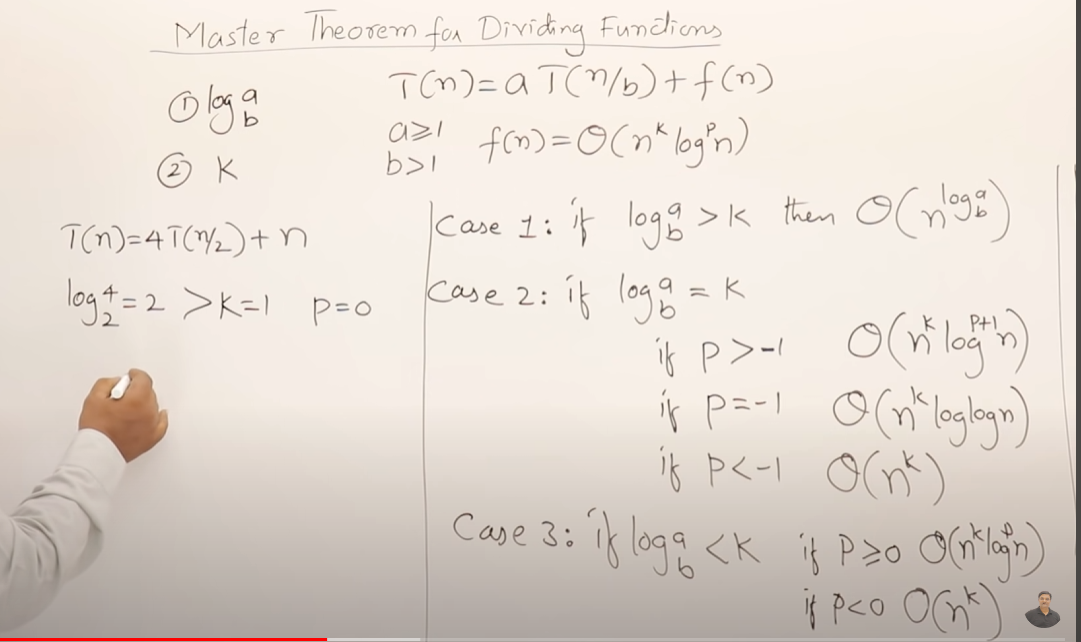 Master Theorem for Dividing Functions
① log_b^a
② K
T(n)=a T(n/b)+f(n)
a≥1
b>1
f(n)=O(n^k log^p n)
T(n)=4T(n/2)+n
log_2^4=2 >K=1 P=0
Case 1: if log_b^a > K then O(n^{log_b^a})
Case 2: if log_b^a = K
if P>-1 O(n^k log^{P+1} n)
if P=-1 O(n^k loglogn)
if P<-1 O(n^k)
Case 3: if log_b^a < K if P≥0 O(n^k log^p n)
if P<0 O(n^k)